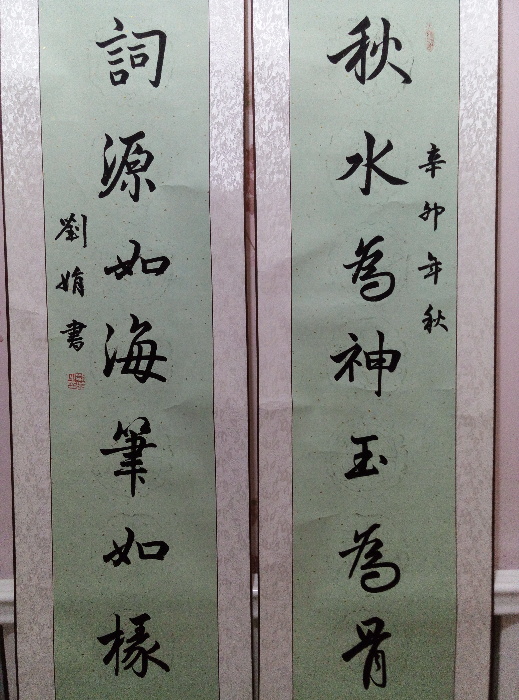 辛卯年秋
秋水為神玉為骨
詞源如海筆如椽
劉娟書